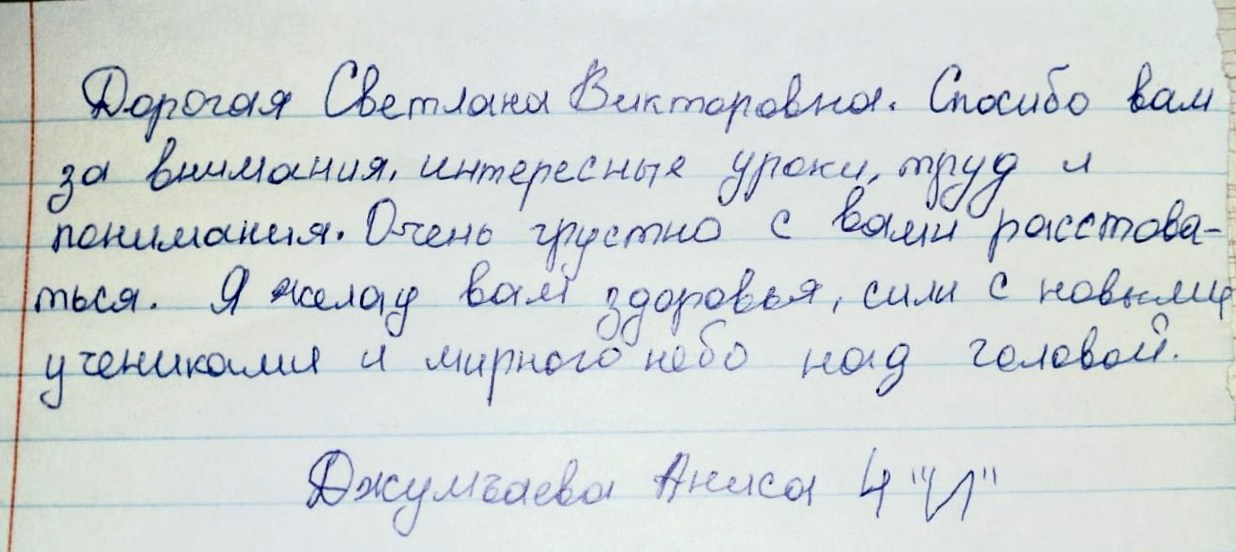 Дорогая Светлана Викторовна. Спосибо вам
за внимания, интересные уроки, труд и
понимания. Очень грустно с вами расстова-
ться. Я желау вам здоровья, сили с новыми
учениками и мирного небо над головой.
Джумъаева Аниса 4 "И"